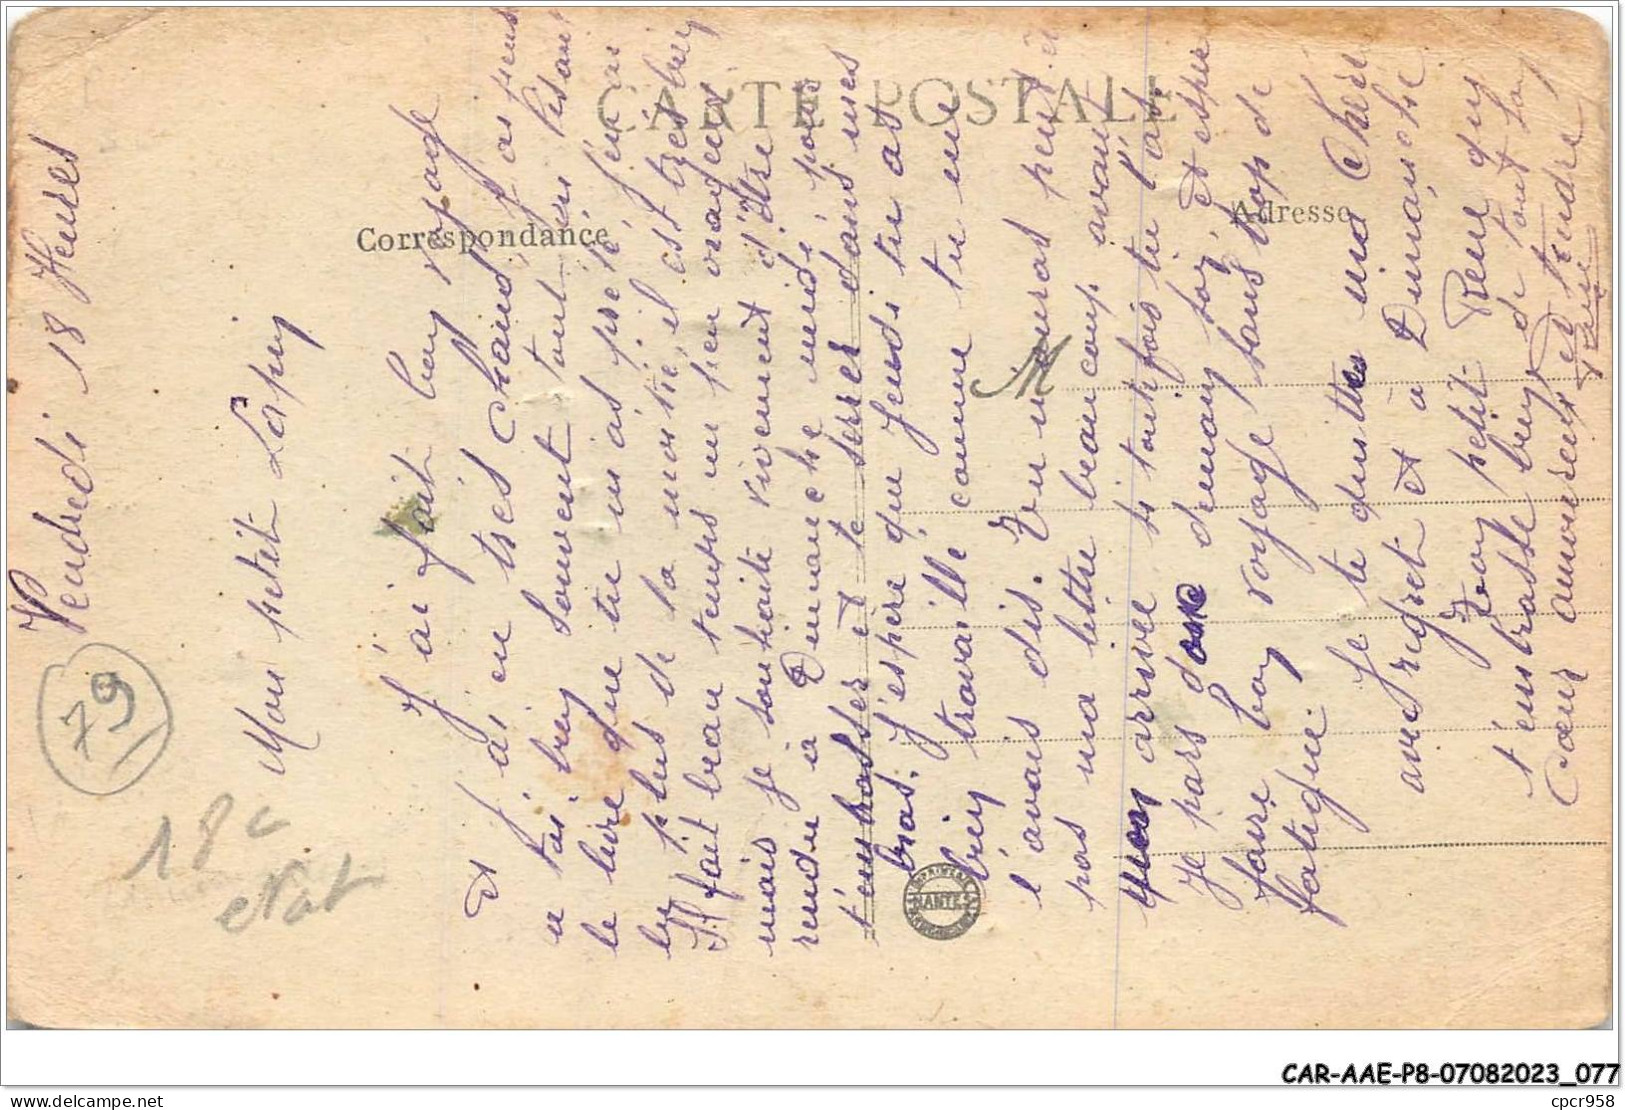 CARTE POSTALE
Correspondance
Adresse
M
Vendredi 18 Heures
79
18c
état
Mon petit Lapin
J'ai fait bon voyage
et j'ai eu très chaud, j'ai
tu souvent tout en lisant
le livre que tu m'as prêté, j'en ai
lu plus de la moitié, il est très bien
Il fait beau temps un peu orageux
mais je souhaite vivement d'être
rendu à Dimanche midi pour
t'embrasser et te serrer dans mes
bras. J'espère que Jeudi tu as
bien travaillé comme tu me
l'avais dis. Tu n'auras peut être
pas ma lettre beaucoup avant
mon arrivée si toutefois tu l'as.
Je pars donc demain soir, et espère
faire bon voyage sans trop de
fatigue.
Je te quitte ma Chérie
avec regret et à Dimanche
Ton petit René qui
t'embrasse bien de tout son
Cœur amoureux et tendre.
René
IMPRIMERIE
NANTES
CAR-AAE-P8-07082023_077
www.delcampe.net
cpcr958